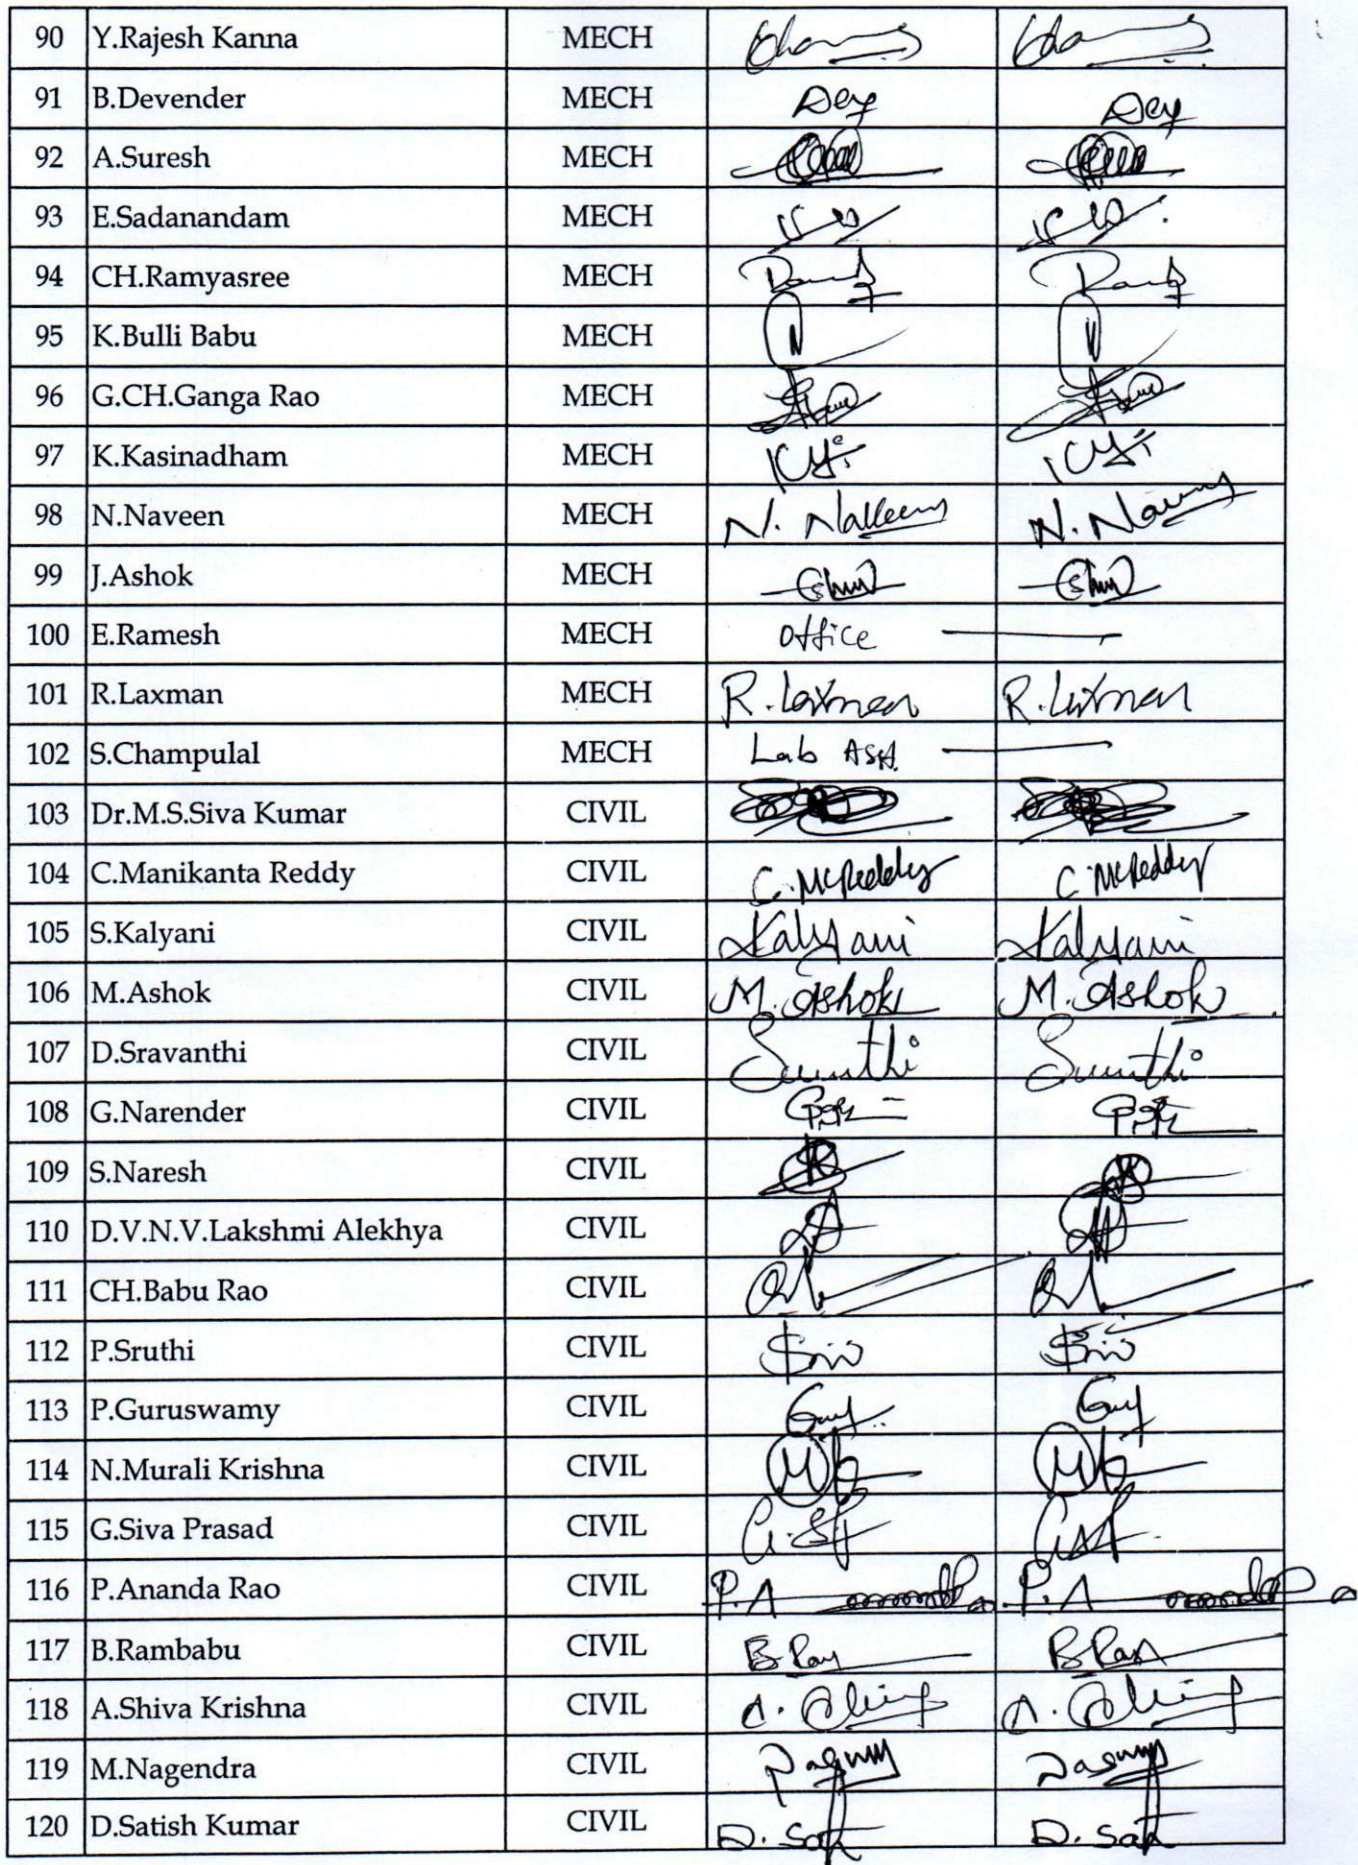 90 Y.Rajesh Kanna MECH
91 B.Devender MECH Dev Dev
92 A.Suresh MECH
93 E.Sadanandam MECH
94 CH.Ramyasree MECH
95 K.Bulli Babu MECH
96 G.CH.Ganga Rao MECH
97 K.Kasinadham MECH
98 N.Naveen MECH N. Naveen N. Naveen
99 J.Ashok MECH
100 E.Ramesh MECH office
101 R.Laxman MECH R.Laxman R.Laxman
102 S.Champulal MECH Lab Asst.
103 Dr.M.S.Siva Kumar CIVIL
104 C.Manikanta Reddy CIVIL C.MKReddy C.MKReddy
105 S.Kalyani CIVIL Kalyani Kalyani
106 M.Ashok CIVIL M.Ashok M.Ashok
107 D.Sravanthi CIVIL
108 G.Narender CIVIL
109 S.Naresh CIVIL
110 D.V.N.V.Lakshmi Alekhya CIVIL
111 CH.Babu Rao CIVIL
112 P.Sruthi CIVIL
113 P.Guruswamy CIVIL
114 N.Murali Krishna CIVIL
115 G.Siva Prasad CIVIL
116 P.Ananda Rao CIVIL
117 B.Rambabu CIVIL
118 A.Shiva Krishna CIVIL
119 M.Nagendra CIVIL
120 D.Satish Kumar CIVIL D.Sat D.Sat